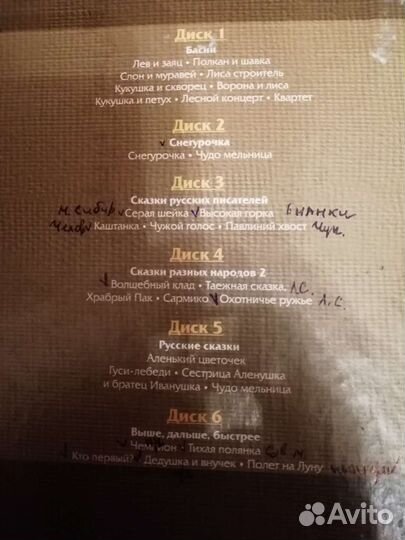 Диск 1
Басни
Лев и заяц • Полкан и шавка
Слон и муравей • Лиса строитель
Кукушка и скворец • Ворона и лиса
Кукушка и петух • Лесной концерт • Квартет
Диск 2
Снегурочка
Снегурочка • Чудо мельница
Диск 3
Сказки русских писателей
Серая шейка • Высокая горка Бианки
Каштанка • Чужой голос • Павлиний хвост
Диск 4
Сказки разных народов 2
Волшебный клад • Таежная сказка Л.С.
Храбрый Пак • Сармико • Охотничье ружье Л.С.
Диск 5
Русские сказки
Аленький цветочек
Гуси-лебеди • Сестрица Аленушка
и братец Иванушка • Чудо мельница
Диск 6
Выше, дальше, быстрее
Чемпион • Тихая полянка
Кто первый? • Дедушка и внучек • Полет на Луну
Avito